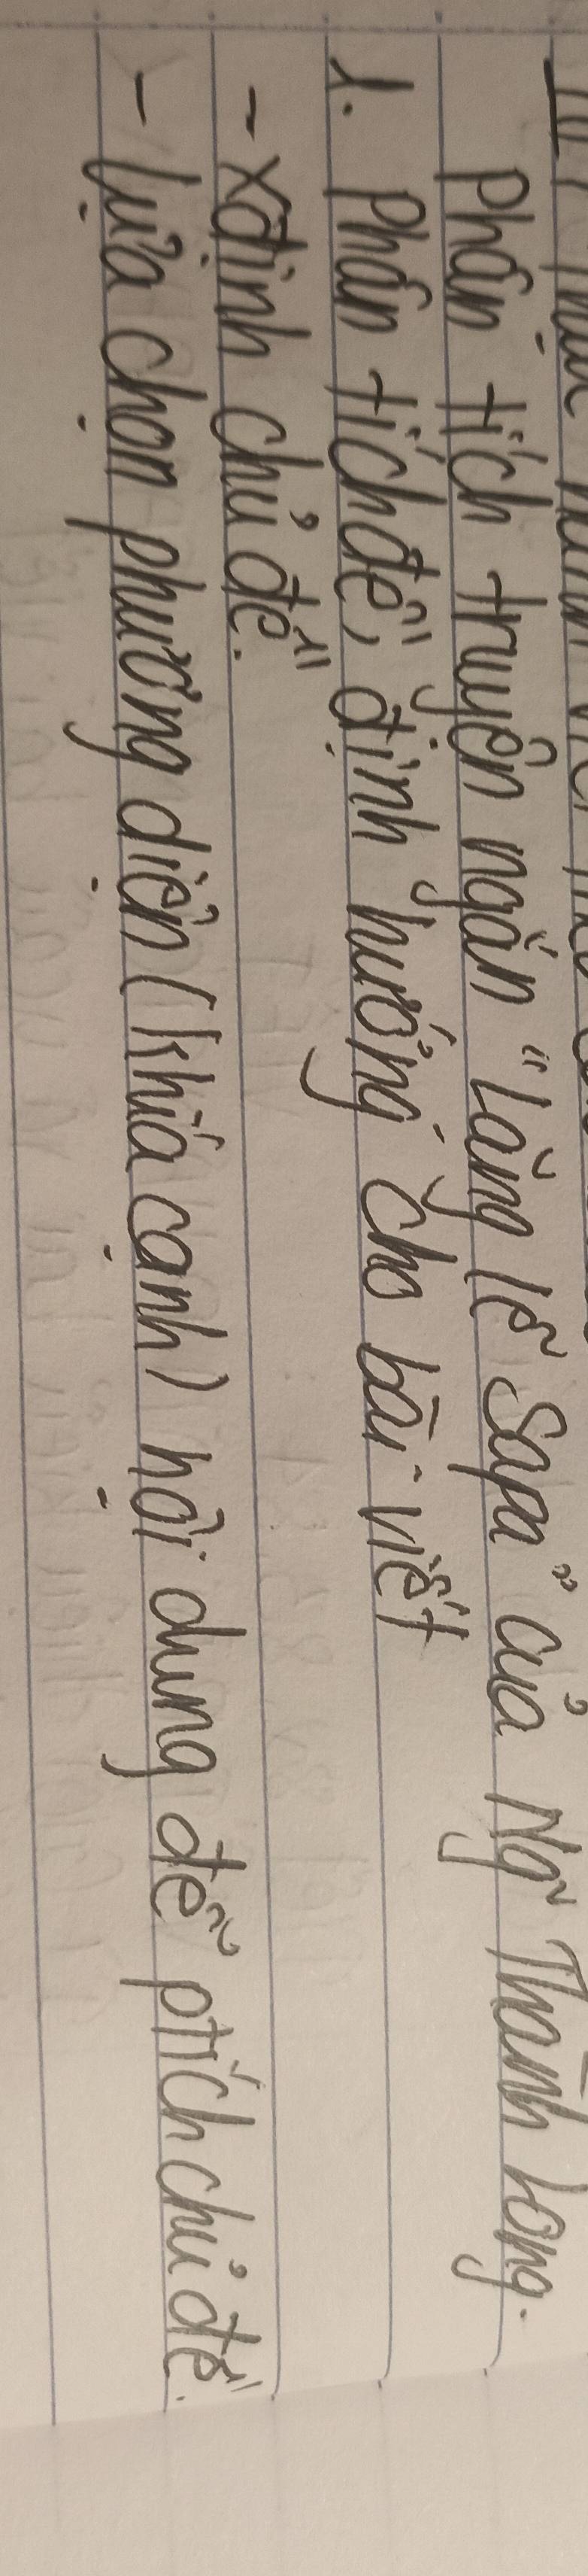 Phân tích truyện ngắn "Lặng lẽ Sapa" của Ng~ Thành Long.
1. Phân tích đề, định hướng cho bài viết
- Xđịnh chủ đề.
- Lựa chọn phương diện (khía cạnh) nội dung để ptích chủ đề.